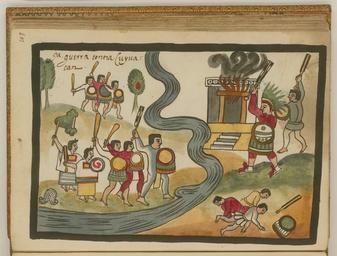 la guerra contra Cuyuacan